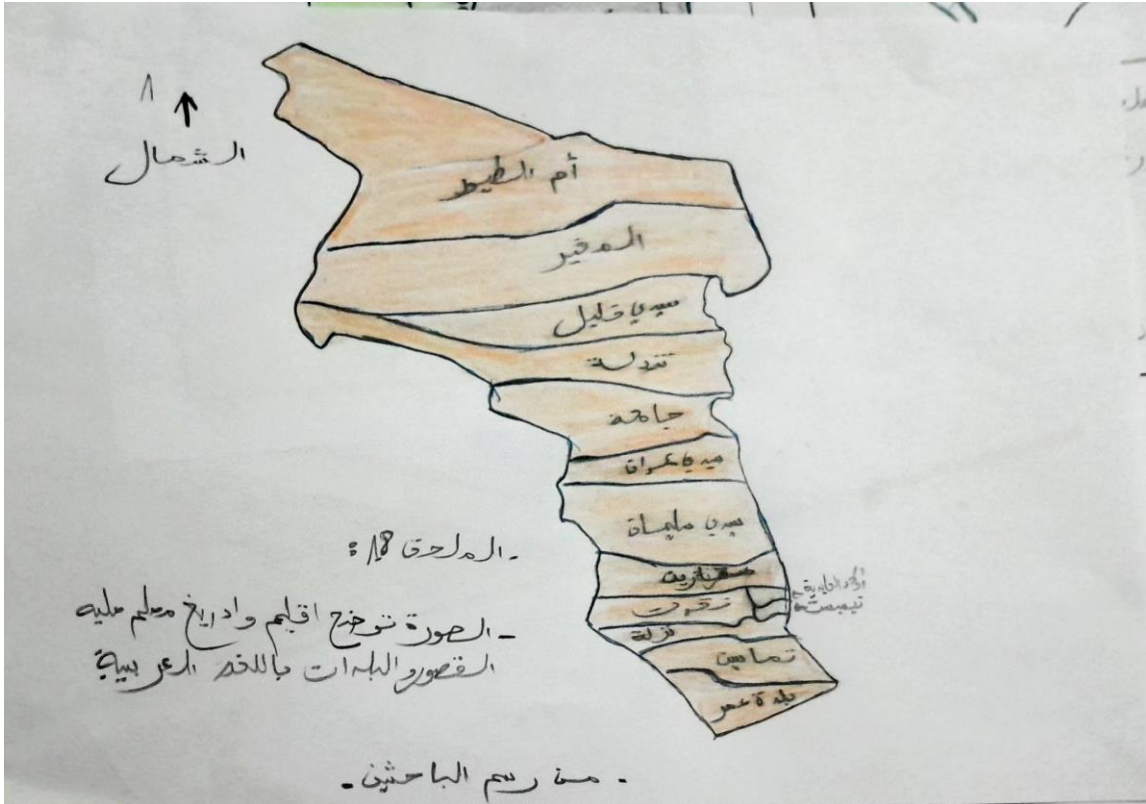 الشمال
أم الطيور
المغير
سيدي خليل
تندلة
جامعة
سيدي عمران
سيدي سليمان
مقارين
تقرت
تبسبست
نزلة
تماسين
بلدة عمر
-الملحق 18:
- الصورة توضح اقليم واد ريغ معلم عليه
القصور والبلدات باللغة العربية
- من رسم الباحثين -